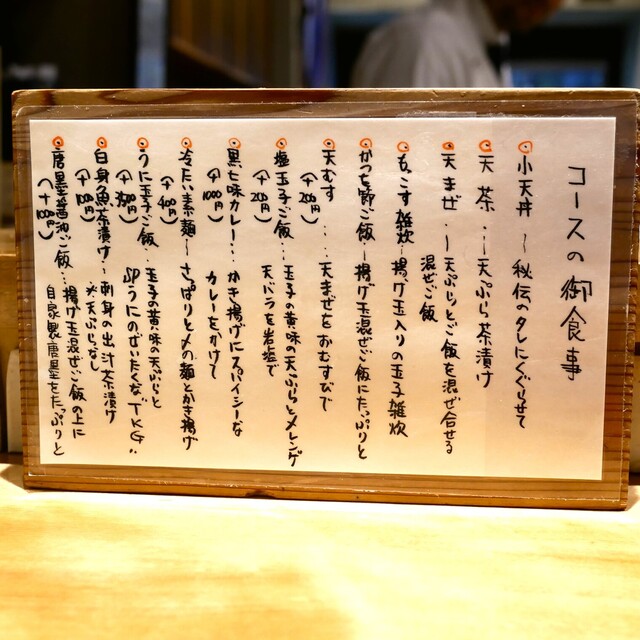 コースの御食事
小天丼 〜 秘伝のタレにくぐらせて
天茶 … 天ぷら茶漬け
天まぜ … 天ぷらとご飯を混ぜ合せる
混ぜご飯
もっこす雑炊…揚げ玉入りの玉子雑炊
かつを節ご飯〜揚げ玉混ぜご飯にたっぷりと
天むす ‥‥天まぜをおむすびで
(+200円)
塩玉子ご飯…玉子の黄味の天ぷらとメレンゲ
(+200円) 天バラを岩塩で
黒七味カレー…かき揚げにスパイシーな
(+1000円) カレーをかけて
冷たい素麺〜さっぱりと〆の麺とかき揚げ
(+400円)
うに玉子ご飯…玉子の黄味の天ぷらと
SPうにのぜいたくな"TKG"
白身魚茶漬け〜刺身の出汁茶漬け
(+100円) ※天ぷらなし
唐墨醤油ご飯…揚げ玉混ぜご飯の上に
自家製唐墨をたっぷりと